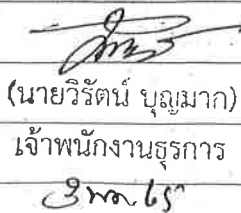 (นายวิรัตน์ บุญมาก)
เจ้าพนักงานธุรการ
3 พ.ค. 65